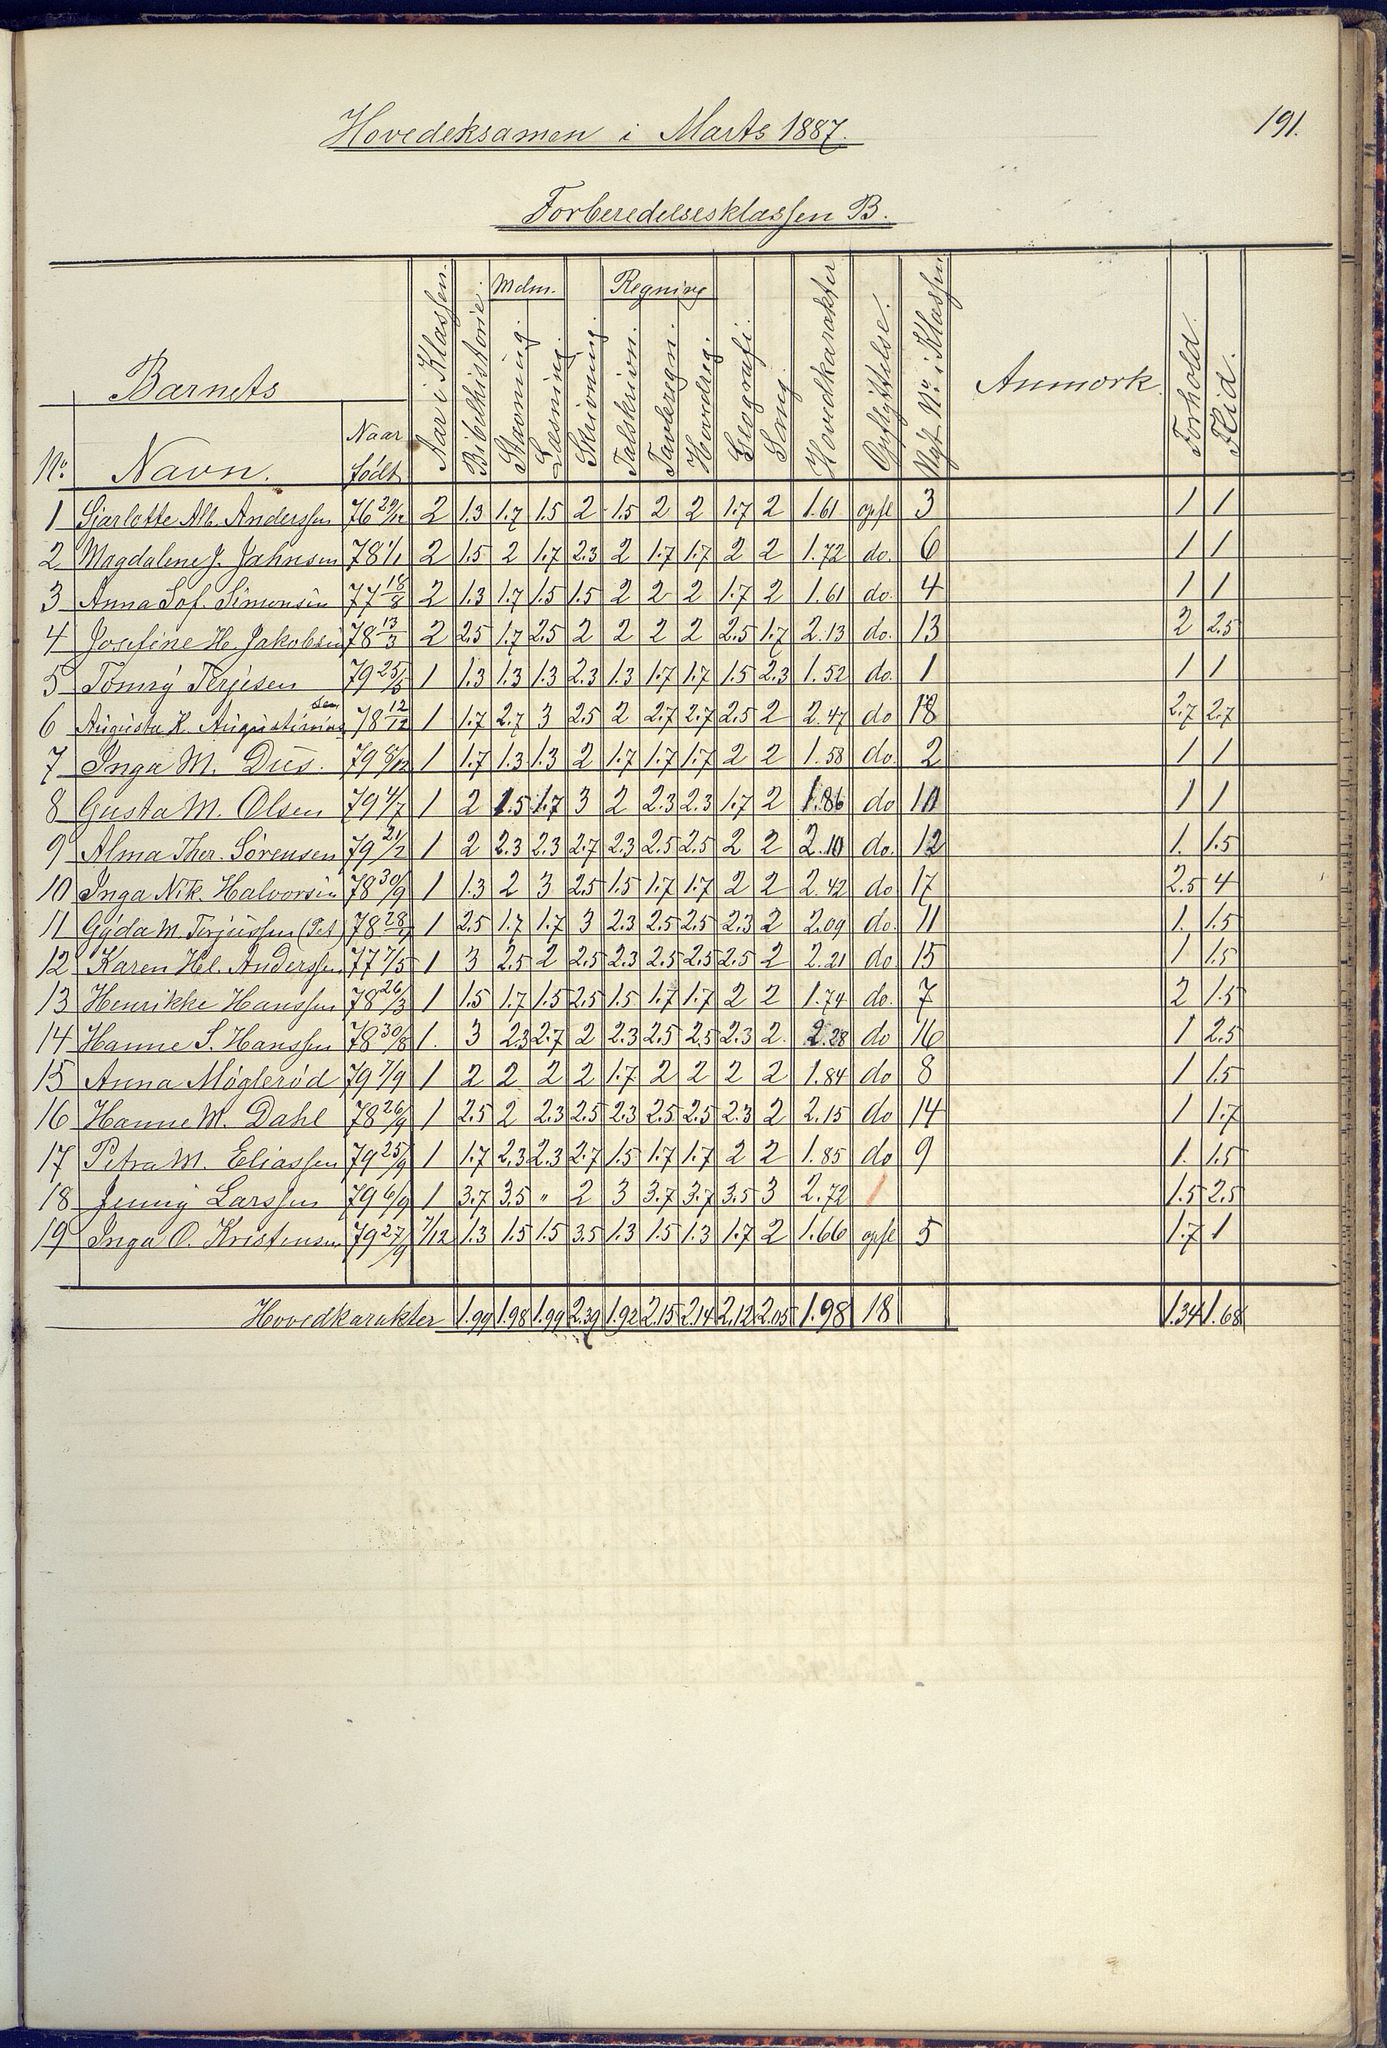 191.
Hovedeksamen i Marts 1887.
Forberedelsesklassen B.
No. Barnets Navn. Naar født Aar i Klassen. Bibelhistorie. Mdm. Stavning. Læsning. Skrivning. Regning Talskrivn. Tavleregn. Hovedreg. Geografi. Sang. Hovedkarakter Opflyttelse. Nyt No. i Klassen Anmærk. Forhold. Flid.
1 Sjarlotte Alb. Anderssen 76 29/12 2 1.3 1.7 1.5 2 1.5 2 2 1.7 2 1.61 opfl 3 1 1
2 Magdalene J. Jahnsen 78 1/1 2 1.5 2 1.7 2.3 2 1.7 1.7 2 2 1.72 do. 6 1 1
3 Anna Sof. Simonsen 77 18/8 2 1.3 1.7 1.5 1.5 2 2 2 1.7 2 1.61 do. 4 1 1
4 Josefine H. Jakobsen 78 13/3 2 2.5 1.7 2.5 2 2 2 2 2.5 1.7 2.13 do. 13 2 2.5
5 Tomy Terjesen 79 25/5 1 1.3 1.3 1.3 2.3 1.3 1.7 1.7 1.5 2.3 1.52 do. 1 1 1
6 Augusta K. Augustinussen 78 12/12 1 1.7 2.7 3 2.5 2 2.7 2.7 2.5 2 2.47 do 18 2.7 2.7
7 Inga M. Dus. 79 8/12 1 1.7 1.3 1.3 2 1.7 1.7 1.7 2 2 1.58 do. 2 1 1
8 Gusta M. Olsen 79 4/7 1 2 1.5 1.7 3 2 2.3 2.3 1.7 2 1.86 do 10 1 1
9 Alma Ther. Sørensen 79 21/2 1 2 2.3 2.3 2.7 2.3 2.5 2.5 2 2 2.10 do. 12 1. 1.5
10 Inga Nik. Halvorsen 78 30/9 1 1.3 2 3 2.5 1.5 1.7 1.7 2 2 2.42 do 17 2.5 4
11 Gyda M. Terjussen (Pet) 78 28/ 1 2.5 1.7 1.7 3 2.3 2.5 2.5 2.3 2 2.09 do. 11 1. 1.5
12 Karen Hel. Anderssen 77 7/5 1 3 2.5 2 2.5 2.3 2.5 2.5 2.5 2 2.21 do 15 1 1.5
13 Henrikke Hanssen 78 26/3 1 1.5 1.7 1.5 2.5 1.5 1.7 1.7 2 2 1.74 do. 7 2 1.5
14 Hanne S. Hanssen 78 30/8 1. 3 2.3 2.7 2 2.3 2.5 2.5 2.3 2. 2.28 do 16 1 2.5
15 Anna Møglerød 79 7/9 1 2 2 2 2 1.7 2 2 2 2 1.84 do 8 1 1.5
16 Hanne M. Dahl 78 26/9 1 2.5 2 2.3 2.5 2.3 2.5 2.5 2.3 2 2.15 do 14 1 1.7
17 Petra M. Eliassen 79 25/9 1 1.7 2.3 2.3 2.7 1.5 1.7 1.7 2 2 1.85 do 9 1. 1.5
18 Jenny Larssen 79 6/9 1 3.7 3.5 " 2 3 3.7 3.7 3.5 3 2.72 / 1.5 2.5
19 Inga O. Kristensen 79 27/9 7/12 1.3 1.5 1.5 3.5 1.3 1.5 1.3 1.7 2 1.66 opfl 5 1.7 1
Hovedkarakter 1.99 1.98 1.99 2.39 1.92 2.15 2.14 2.12 2.05 1.98 18 1.34 1.68